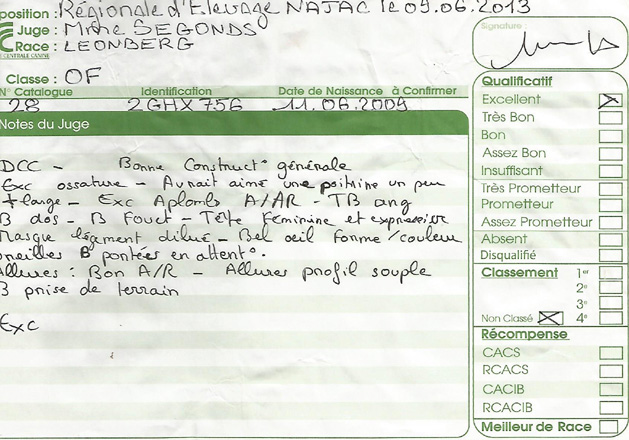 position : Régionale d'Elevage NAJAC le 09.06.2013
Juge : Mme SEGONDS
Race : LEONBERG
CENTRALE CANINE
Classe : OF
N° Catalogue Identification Date de Naissance à Confirmer
28 2GHX756 11.06.2009
Notes du Juge
DCC - Bonne Construct° générale
Exc ossature - Aurait aimé une poitrine un peu
+ large - Exc Aplombs A/AR - TB ang
B dos - B Fouet - Tête féminine et expressive
Masque légament dilué - Bel oeil forme/couleur
oreilles B portées en attent°.
Allures : Bon A/R - Allures profil souple
B prise de terrain
Exc
Signature :
Qualificatif
Excellent
Très Bon
Bon
Assez Bon
Insuffisant
Très Prometteur
Prometteur
Assez Prometteur
Absent
Disqualifié
Classement 1er
2e
3e
Non Classé 4e
Récompense
CACS
RCACS
CACIB
RCACIB
Meilleur de Race